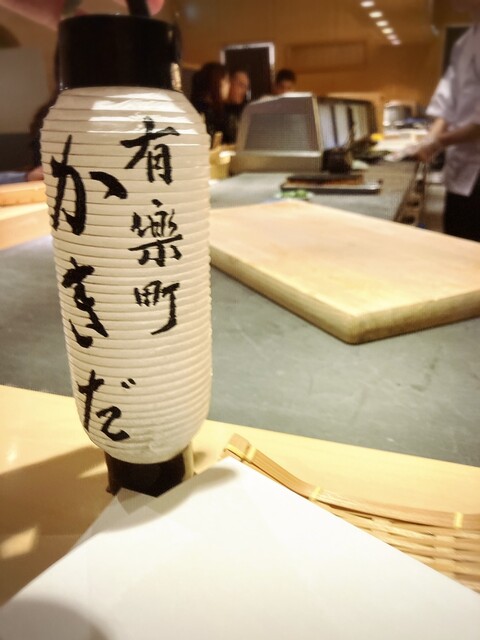 有樂町
かきだ